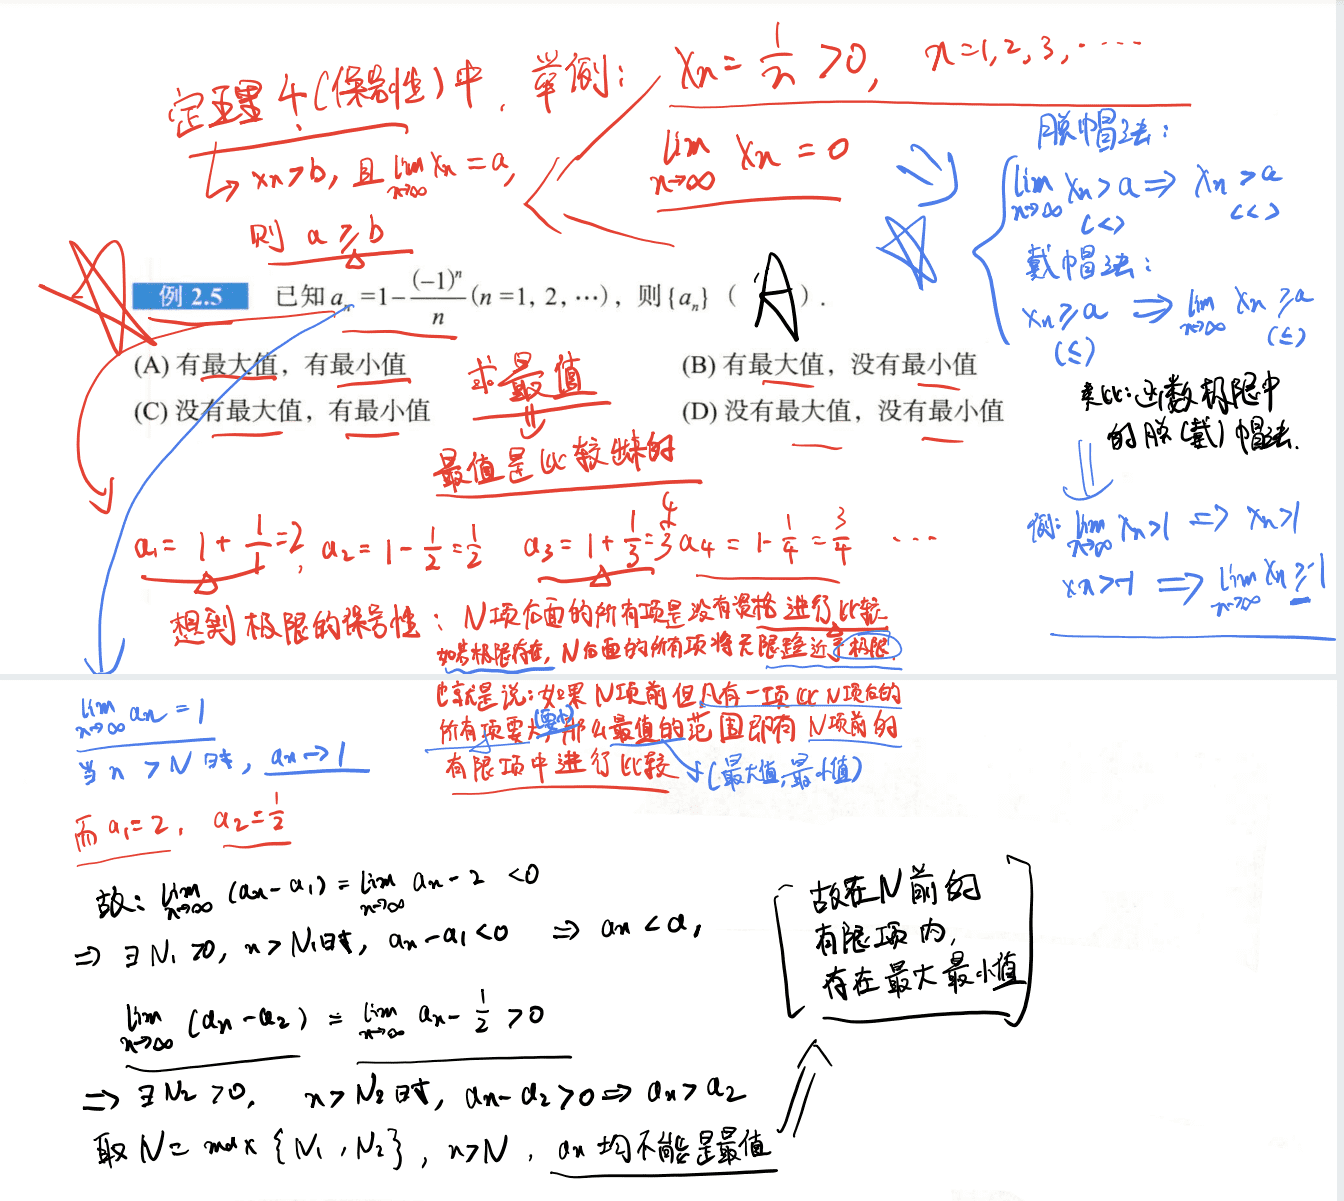 定理4(保号性)中,举例: xn = 1/n > 0, n=1,2,3,……
↳ xn>b, 且 lim n→∞ xn = a,
lim n→∞ xn = 0
则 a ≥ b
脱帽法:
lim n→∞ xn > a ⇒ xn > a
(<) (<)
戴帽法:
xn ≥ a ⇒ lim n→∞ xn ≥ a
(≤) (≤)
类比:函数极限中
的脱(戴)帽法.
例: lim n→∞ xn>1 ⇒ xn>1
xn>-1 ⇒ lim n→∞ xn ≥ -1
例 2.5 已知 aₙ=1-(-1)ⁿ/n (n=1, 2, …),则{aₙ}( A ).
(A) 有最大值,有最小值 (B) 有最大值,没有最小值
(C) 没有最大值,有最小值 (D) 没有最大值,没有最小值
求最值
⇓
最值是比较出来的
a₁ = 1 + 1/1 = 2, a₂ = 1 - 1/2 = 1/2 a₃ = 1 + 1/3 = 4/3 a₄ = 1 - 1/4 = 3/4 ……
想到极限的保号性: N项后面的所有项是没有资格进行比较
如果极限存在, N后面的所有项将无限趋近于极限.
也就是说:如果N项前但凡有一项比N项后的
所有项要大(要小),那么最值的范围即有N项前的
有限项中进行比较 (最大值,最小值)
lim n→∞ an = 1
当 n > N 时, an → 1
而 a₁=2, a₂=1/2
故: lim n→∞ (an-a₁) = lim n→∞ an - 2 < 0
⇒ ∃ N₁>0, n>N₁时, an-a₁<0 ⇒ an < a₁
lim n→∞ (an-a₂) = lim n→∞ an - 1/2 > 0
⇒ ∃ N₂>0, n>N₂时, an-a₂>0 ⇒ an>a₂
取 N = max {N₁, N₂}, n>N, an 均不能是最值
故在N前的
有限项内,
存在最大最小值